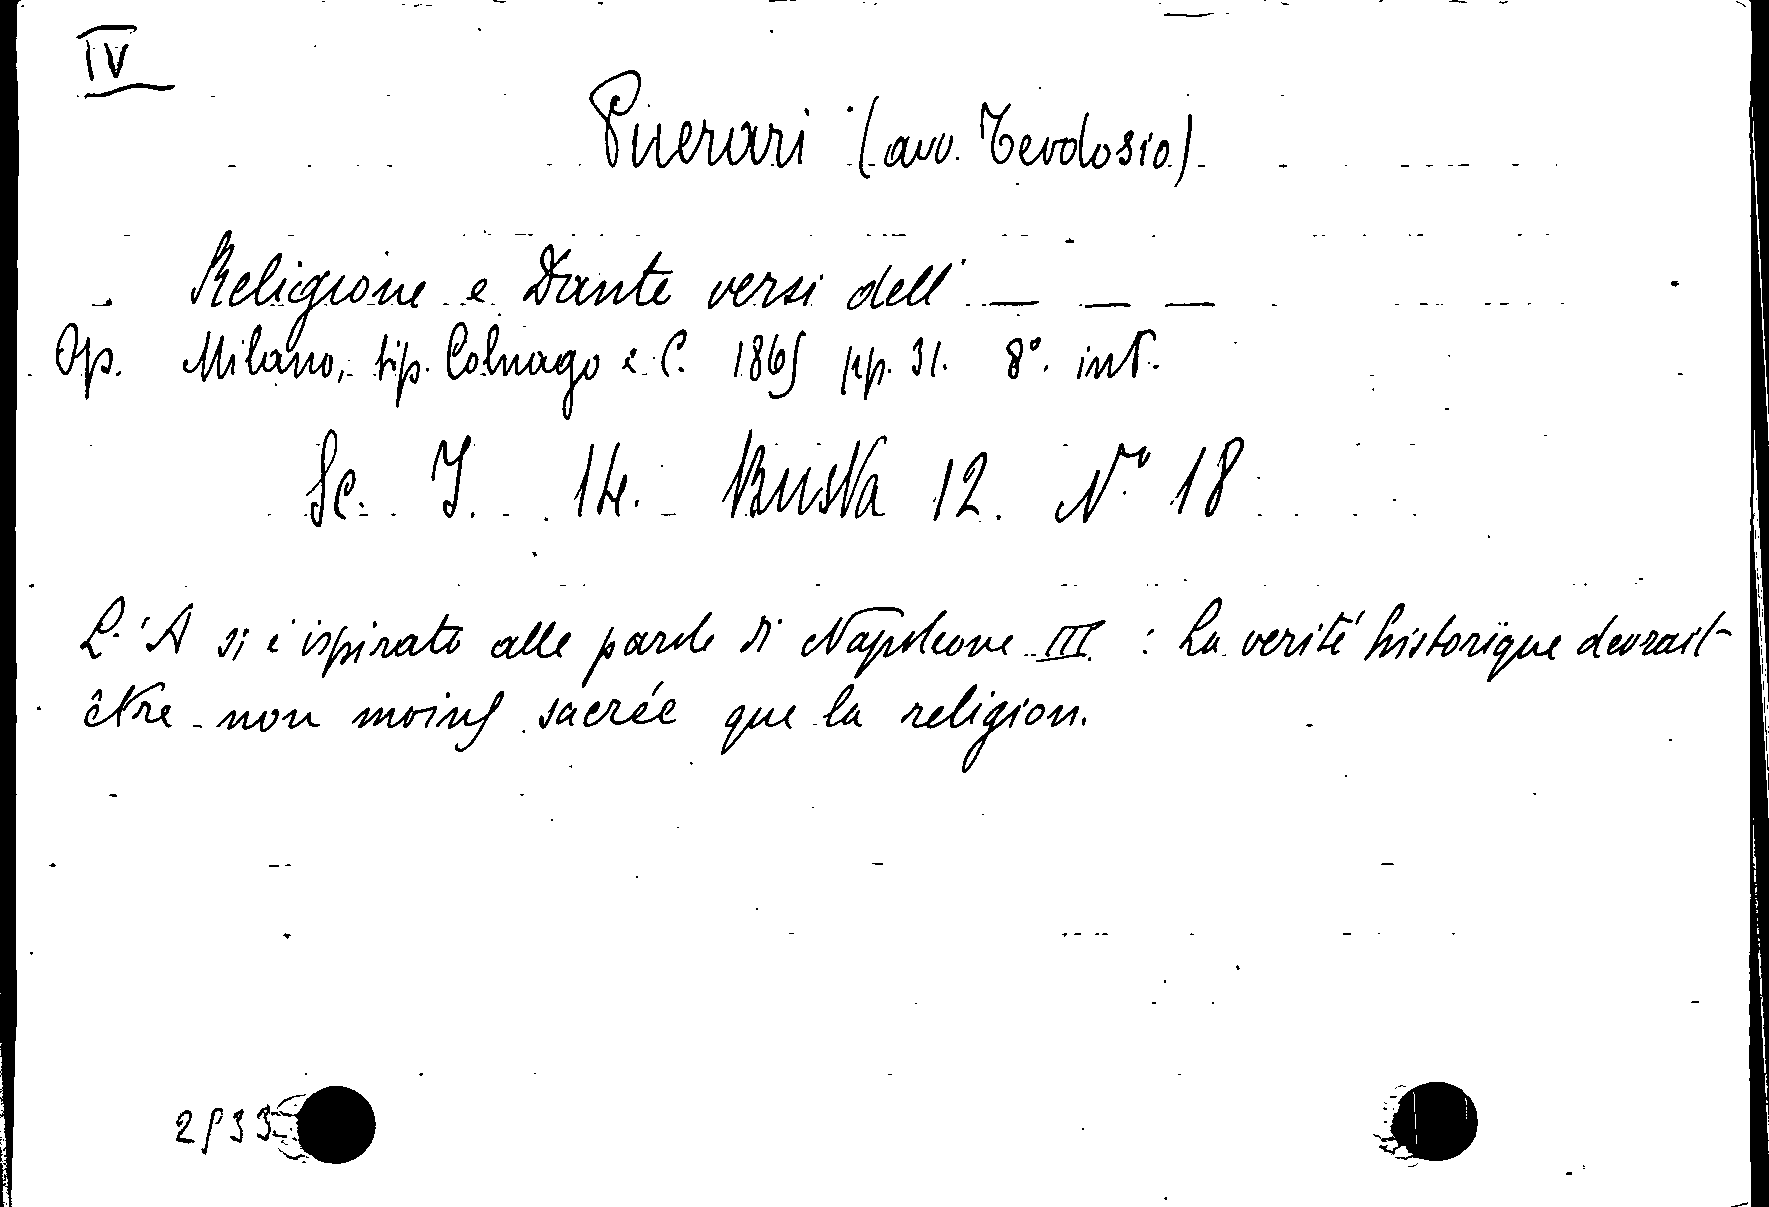 IV
Puerari (avv. Teodosio)
Religione e Dante versi dell' — — —
Op. Milano, tip. Colnago e C. 1865 pp. 31. 8°. int.
Sc. I. 14. Busta 12. N° 18
L'A si è ispirato alle parole di Napoleone III : La verité historique devrait
être non moins sacrée que la religion.
2533